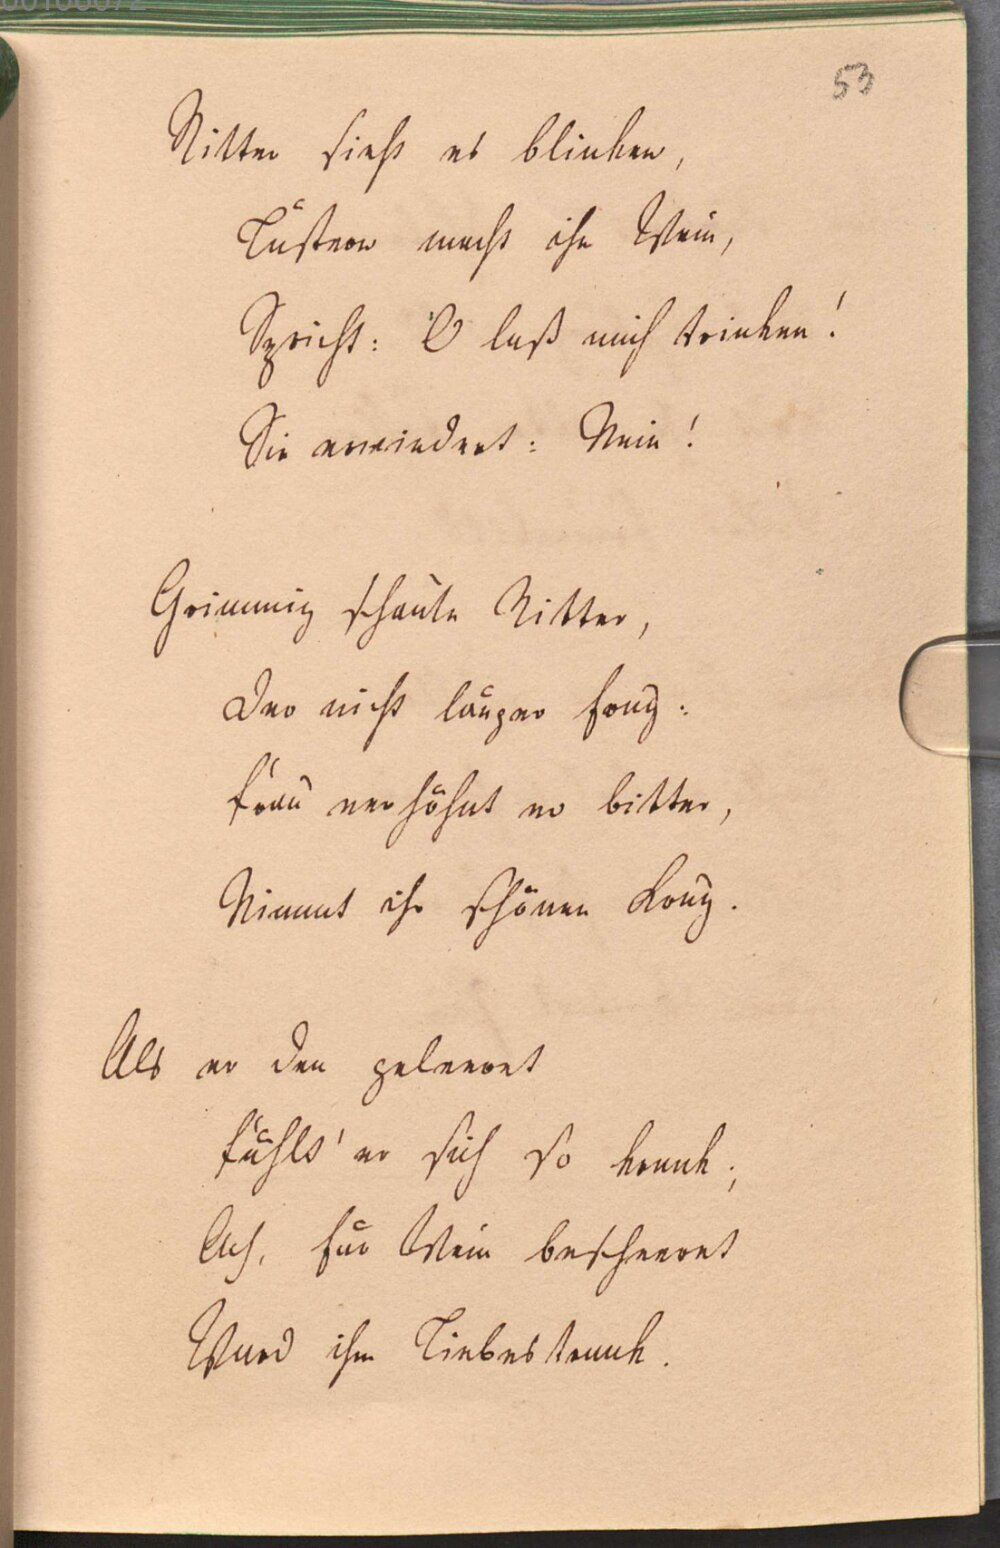 00100072
53
Ritter sieht es blinken,
Lüstern macht ihn Wein,
Spricht: O laß mich trinken!
Sie erwiedert: Nein!
Grimmig schaute Ritter,
Der nicht länger
Frau verhöhnt er bitter,
Nimmt ihr schönen
Als er den geleeret
Fühlt' er sich so krank;
Ach, für Wein bescheeret
Ward ihm Liebestrank.